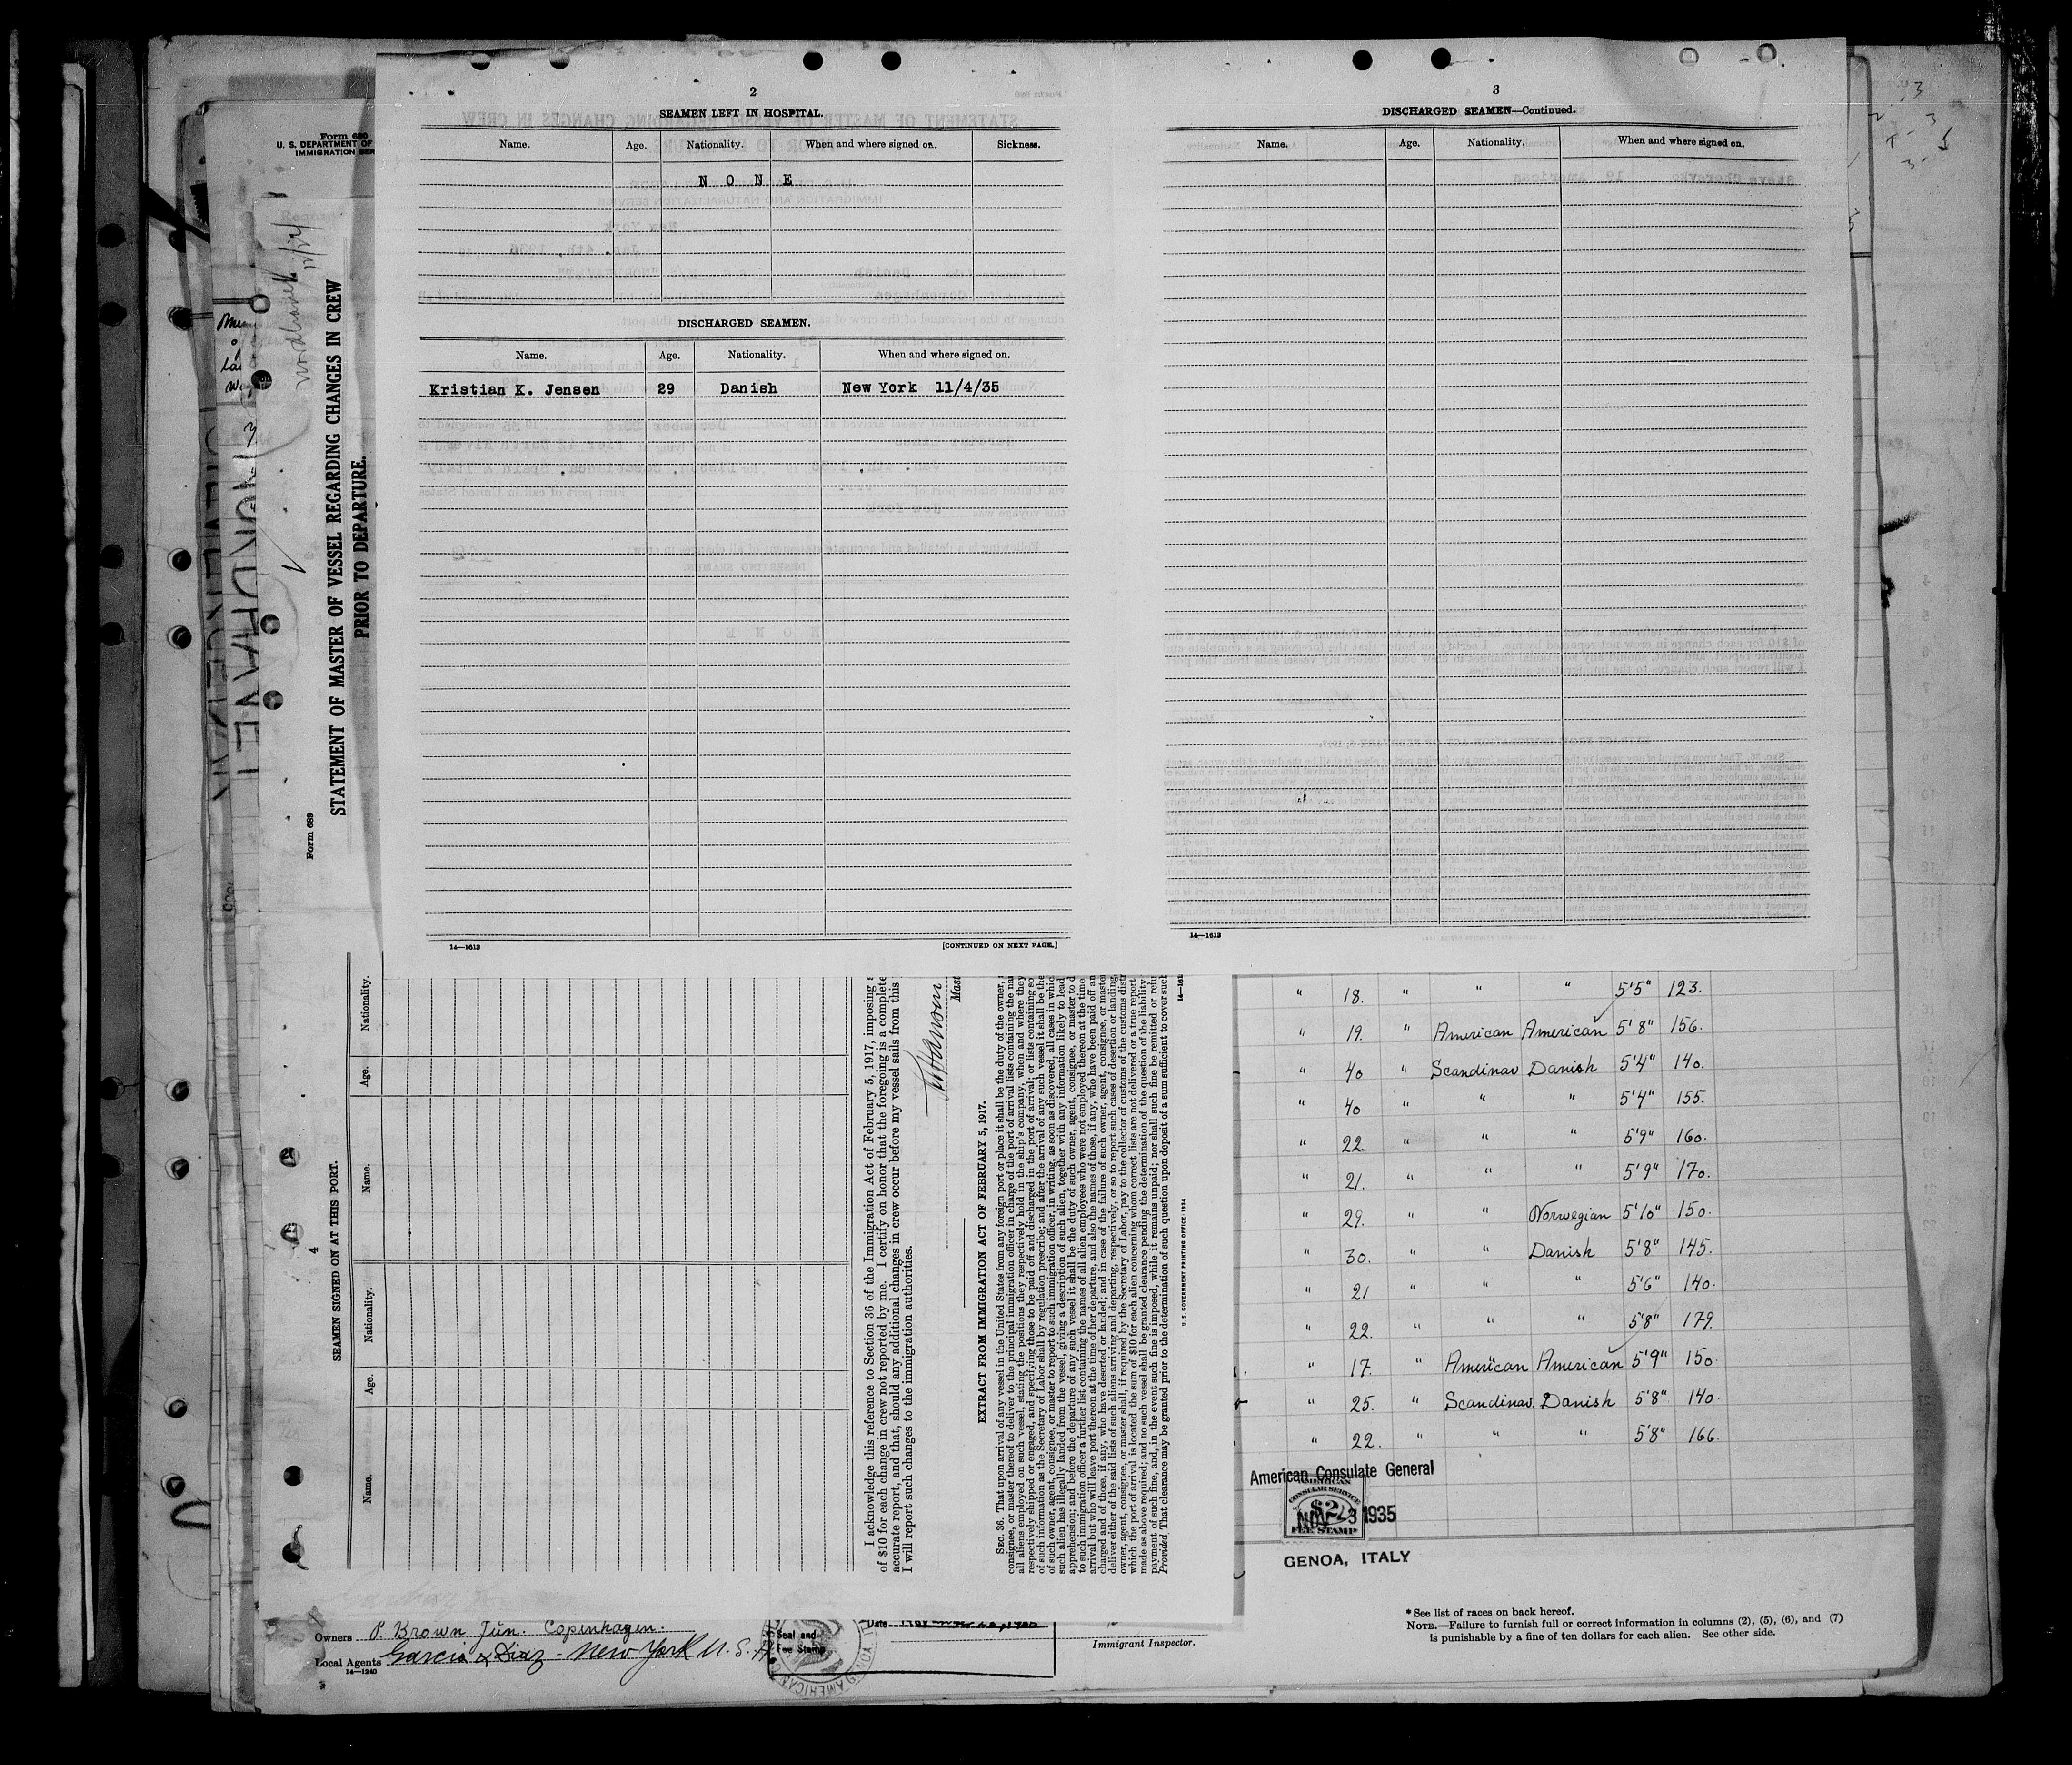 2
SEAMEN LEFT IN HOSPITAL.
Name. Age. Nationality. When and where signed on. Sickness.
N O N E
DISCHARGED SEAMEN.
Name. Age. Nationality. When and where signed on.
Kristian K. Jensen 29 Danish New York 11/4/35
14—1613 [CONTINUED ON NEXT PAGE.]
3
DISCHARGED SEAMEN—Continued.
Name. Age. Nationality. When and where signed on.
14—1613
Form 680
U. S. DEPARTMENT OF
IMMIGRATION SER
Form 689
STATEMENT OF MASTER OF VESSEL REGARDING CHANGES IN CREW
PRIOR TO DEPARTURE.
4
SEAMEN SIGNED ON AT THIS PORT.
Name. Age. Nationality. Name. Age. Nationality.
I acknowledge this reference to Section 36 of the Immigration Act of February 5, 1917, imposing
of $10 for each change in crew not reported by me. I certify on honor that the foregoing is a complete
accurate report, and that, should any additional changes in crew occur before my vessel sails from this
I will report such changes to the immigration authorities.
Mast
EXTRACT FROM IMMIGRATION ACT OF FEBRUARY 5, 1917.
SEC. 36. That upon arrival of any vessel in the United States from any foreign port or place it shall be the duty of the owner,
consignee, or master thereof to deliver to the principal immigration officer in charge of the port of arrival lists containing the na
all aliens employed on such vessel, stating the positions they respectively hold in the ship's company, when and where they
respectively shipped or engaged, and specifying those to be paid off and discharged in the port of arrival; or lists containing so
of such information as the Secretary of Labor shall by regulation prescribe; and after the arrival of any such vessel it shall be the
of such owner, agent, consignee, or master to report to such immigration officer, in writing, as soon as discovered, all cases in whic
such alien has illegally landed from the vessel, giving a description of such alien, together with any information likely to lead
apprehension; and before the departure of any such vessel it shall be the duty of such owner, agent, consignee, or master to d
to such immigration officer a further list containing the names of all alien employees who were not employed thereon at the time
arrival but who will leave port thereon at the time of her departure, and also the names of those, if any, who have been paid off an
charged and of those, if any, who have deserted or landed; and in case of the failure of such owner, agent, consignee, or master
deliver either of the said lists of such aliens arriving and departing, respectively, or so to report such cases of desertion or landing,
owner, agent, consignee, or master shall, if required by the Secretary of Labor, pay to the collector of customs of the customs distr
which the port of arrival is located the sum of $10 for each alien concerning whom correct lists are not delivered or a true report
made as above required; and no such vessel shall be granted clearance pending the determination of the question of the liability
payment of such fine, and, in the event such fine is imposed, while it remains unpaid; nor shall such fine be remitted or refu
Provided, That clearance may be granted prior to the determination of such question upon deposit of a sum sufficient to cover such
U. S. GOVERNMENT PRINTING OFFICE 1934
" 18. " " " 5'5" 123.
" 19. " American American 5'8" 156.
" 40 " Scandinav Danish 5'4" 140.
" 40 " " " 5'4" 155.
" 22. " " " 5'9" 160.
" 21. " " " 5'9" 170.
" 29. " " Norwegian 5'10" 150.
" 30. " " Danish 5'8" 145.
" 21 " " " 5'6" 140.
" 22. " " " 5'8" 179.
" 17. " American American 5'9" 150
" 25. " Scandinav. Danish 5'8" 140.
" 22. " " " 5'8" 166.
American Consulate General
AMERICAN
CONSULAR SERVICE
$2
FEE STAMP
NOV 23 1935
GENOA, ITALY
Owners P. Brown Jun. Copenhagen.
Local Agents Garcia & Diaz - New York U.S.A.
14—1240
Seal and
Fee Stamp
Date
Immigrant Inspector.
* See list of races on back hereof.
NOTE.—Failure to furnish full or correct information in columns (2), (5), (6), and (7)
is punishable by a fine of ten dollars for each alien. See other side.